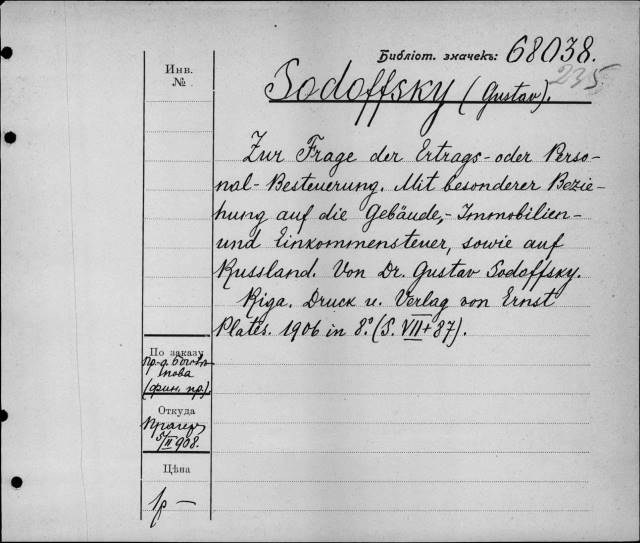 Библіот. значекъ: 68038.
235
Инв.
№
Sodoffsky (Gustav).
Zur Frage der Ertrags- oder Perso-
nal-Besteuerung. Mit besonderer Bezie-
hung auf die Gebäude,- Immobilien-
und Einkommensteuer, sowie auf
Russland. Von Dr. Gustav Sodoffsky.
Riga. Druck u. Verlag von Ernst
Plates. 1906 in 8º. (S. VII+87).
По заказу
пр-д.
(фин. пр.)
Откуда
5/II 908.
Цѣна
1р —